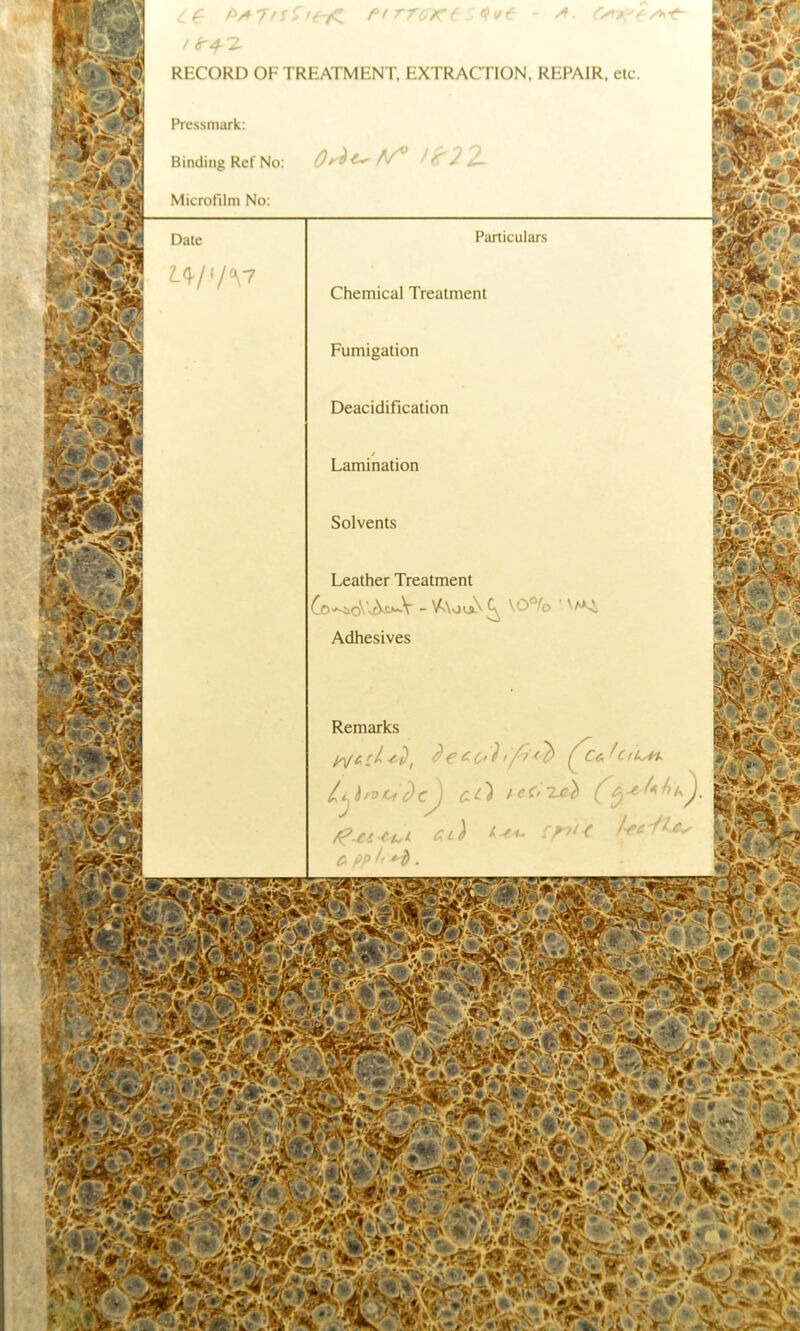 LE PATISSIER PITTORESQUE - A. CARÊME
1842
RECORD OF TREATMENT, EXTRACTION, REPAIR, etc.
Pressmark:
Binding Ref No: Order Nº 1822
Microfilm No:
Date Particulars
29/1/97
Chemical Treatment
Fumigation
Deacidification
Lamination
Solvents
Leather Treatment
Consolidant - Klucel G 10% IMS
Adhesives
Remarks
Washed, deacidified (calcium
hydroxide) and resized (gelatin).
and new spine leather
applied.